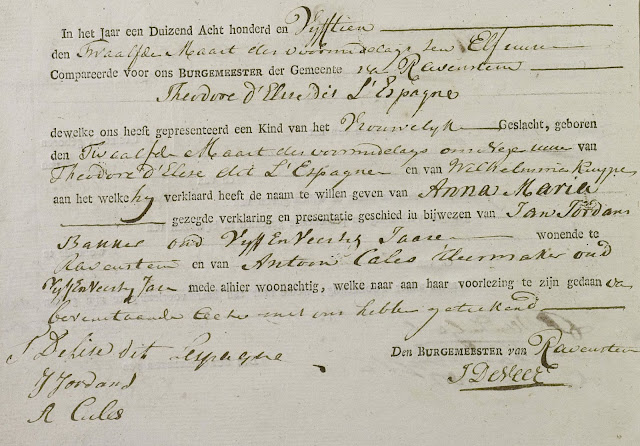 In het Jaar een Duizend Acht honderd en Vyfftien
den Twaalfde Maart des voormiddags ten Elf uure
Compareerde voor ons BURGEMEESTER der Gemeente van Ravenstein
Theodore d'Elise dit L'Espagne
dewelke ons heeft gepresenteerd een Kind van het Vrouwelyk Geslacht, geboren
den Twaalfde Maart des voormiddags om Nege uure van
Theodore d'Elise dit L'Espagne en van Wilhelmina Kuype
aan het welke hy verklaard heeft de naam te willen geven van Anna Maria
gezegde verklaring en presentatie geschied in bijwezen van Jan Jordans
Bakker oud Vyff En Veertig Jaare wonende te
Ravenstein en van Antoon Cales Kleermaker oud
Vyff En Veertig Jare mede alhier woonachtig, welke naar aan haar voorlezing te zijn gedaan van
bovenstaande acte met ons hebben getekend
T Delise dit Lespagne
Den BURGEMEESTER van Ravenstein
J Jordans
J DeVeer
A Cales